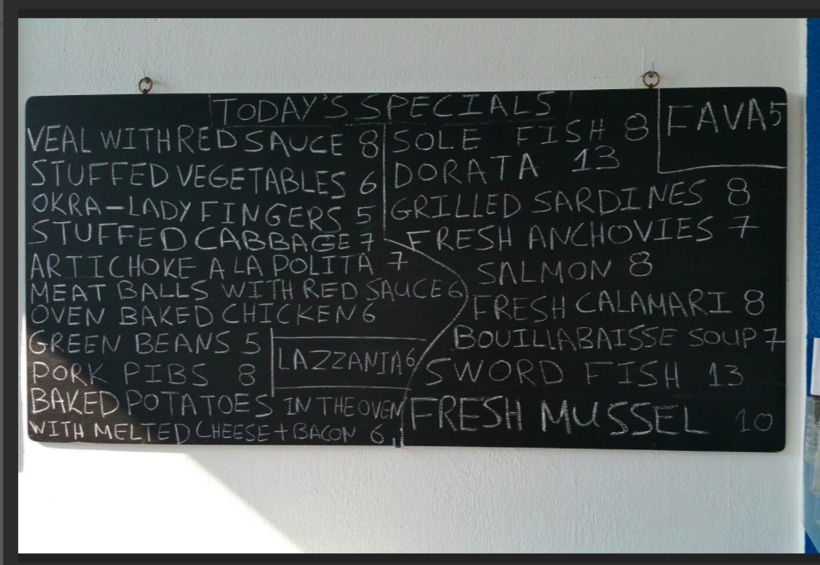 TODAY'S SPECIALS
VEAL WITH RED SAUCE 8
STUFFED VEGETABLES 6
OKRA-LADY FINGERS 5
STUFFED CABBAGE 7
ARTICHOKE A LA POLITA 7
MEAT BALLS WITH RED SAUCE 6
OVEN BAKED CHICKEN 6
GREEN BEANS 5
PORK PIBS 8
LAZZANIA 6
BAKED POTATOES IN THE OVEN
WITH MELTED CHEESE+BACON 6
SOLE FISH 8
DORATA 13
GRILLED SARDINES 8
FRESH ANCHOVIES 7
SALMON 8
FRESH CALAMARI 8
BOUILLABAISSE SOUP 7
SWORD FISH 13
FRESH MUSSEL 10
FAVA 5